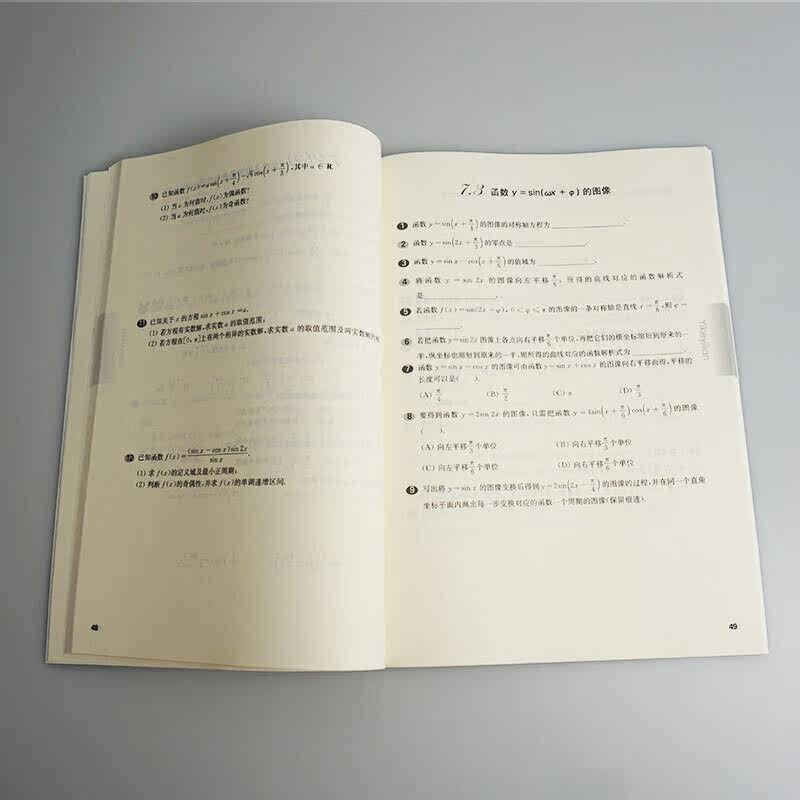 ⑩ 已知函数 f(x)=a sin(x+π/4)-√6cos(x+π/3),其中 a∈R.
(1) 当 a 为何值时,f(x)为偶函数?
(2) 当 a 为何值时,f(x)为奇函数?
⑪ 已知关于 x 的方程 sin x+cos x=a.
(1) 若方程有实数解,求实数 a 的取值范围;
(2) 若方程在[0,π]上有两个相异的实数解,求实数 a 的取值范围及两实数解的
⑫ 已知函数 f(x)=(sin x-cos x)sin 2x/sin x.
(1) 求 f(x)的定义域及最小正周期;
(2) 判断 f(x)的奇偶性,并求 f(x)的单调递增区间.
48
7.3 函数 y=sin(ωx+φ) 的图像
❶ 函数 y=sin(x+π/4)的图像的对称轴方程为________.
❷ 函数 y=sin(2x+π/3)的零点是________.
❸ 函数 y=sin x-cos(x+π/6)的值域为________.
❹ 将函数 y=sin 2x 的图像向左平移π/6, 所得的曲线对应的函数解析式
是________.
❺ 若函数 f(x)=sin(2x+φ),0<φ≤π 的图像的一条对称轴是直线 x=π/8,则 φ=
________.
❻ 若把函数 y=sin2x图像上各点向右平移π/6个单位,再把它们的横坐标缩短到原来的一
半,纵坐标也缩短到原来的一半,则所得的曲线对应的函数解析式为________.
❼ 函数 y=sin x-cos x 的图像可由函数 y=sin x+cos x 的图像向右平移而得,平移的
长度可以是( ).
(A) π/4 (B) π/2 (C) π (D) π/3
❽ 要得到函数 y=2sin 2x 的图像,只需把函数 y=4sin(x+π/6)cos(x+π/6)的图像
( ).
(A) 向左平移π/3个单位 (B) 向右平移π/3个单位
(C) 向左平移π/6个单位 (D) 向右平移π/6个单位
❾ 写出将 y=sin x 的图像变换后得到 y=2sin(2x-π/4)的图像的过程,并在同一个直角
坐标平面内画出每一步变换对应的函数一个周期的图像(保留痕迹).
49